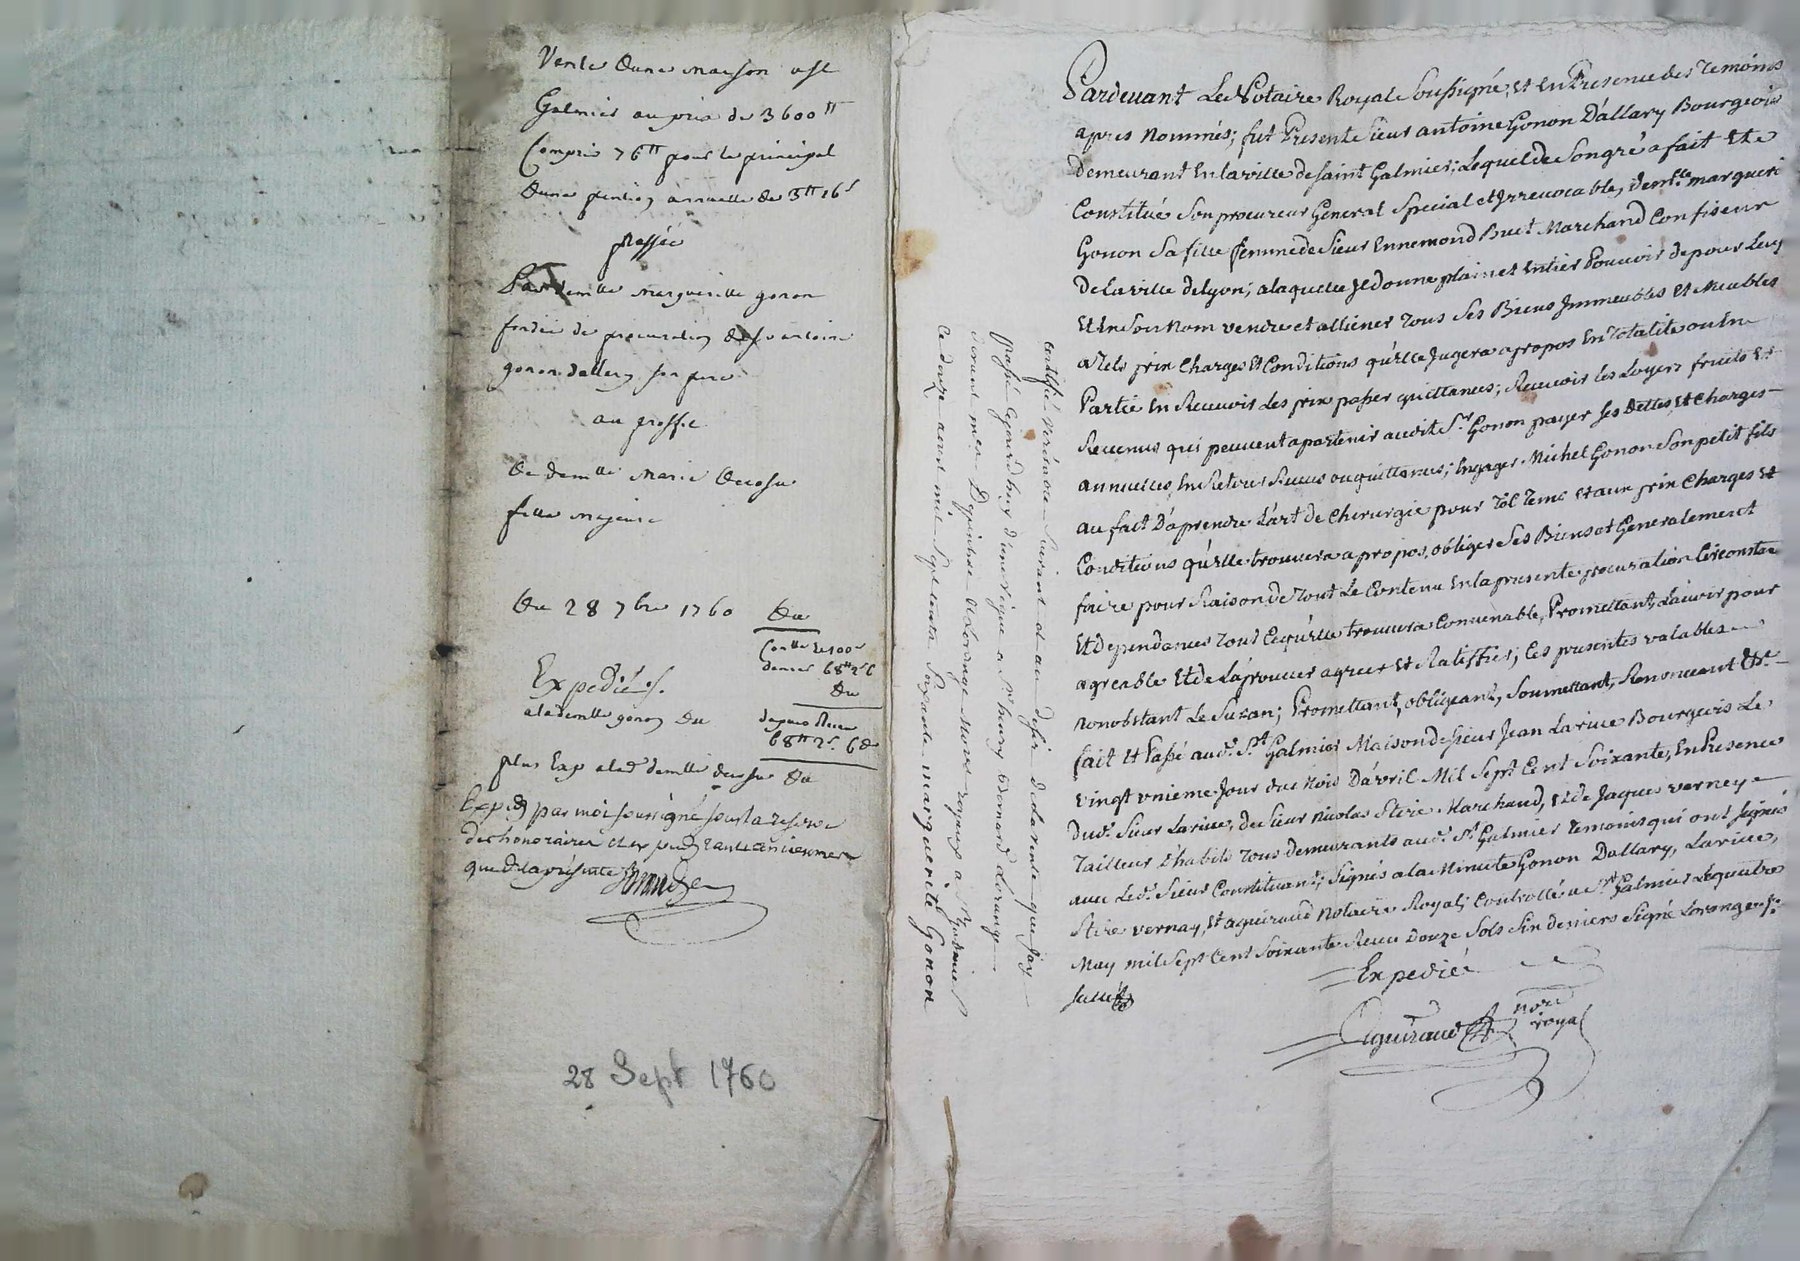 Vente dune maison a st
Galmier au prix de 3600 tt
Compris 76 tt pour le principal
dune pention annuelle de 3 tt 16 s
passée
Par demlle margueritte gonon
fondée de procuration de sr antoine
gonon dallary son pere
au proffit
de demlle Marie
fille majeure
Du 28 7bre 1760
Expedié
a la demlle gonon
68 tt 2 s 6 d
plus Exp a lad demlle
Exped par moi soussigné sous la reserve
des honoraires et exped
que de la présente
28 Sept 1760
Pardevant Le Notaire Royal Soussigné, Et En Presence des Temoins
apres Nommés; fut Present Sieur antoine Gonon D'allary Bourgeois
Demeurant En la ville de saint Galmier; Lequel de Son gré a fait Et
Constitué Son procureur General Special et Irrevocable, demlle margueri
Gonon Sa fille femme de Sieur Ennemond Buet Marchand Confiseur
De la ville de Lyon; a laquelle Il donne plain et Entier Pouvoir de pour Luy
Et En Son Nom vendre et alliener Tous Ses Biens Immeubles Et Meubles
a Tels prix Charges Et Conditions qu'Elle Jugera apropos En Totalité ou En
Partie En Recevoir Les prix passer quittances; Recevoir les Loyers fruits Et
Revenus qui peuvent apartenir audit Sr Gonon payer ses Dettes Et Charges
annuelles En Retirer Reçus ou quittances; Engager Michel Gonon Son petit fils
au fait D'aprendre L'art de Chirurgie pour Tel Tems Et aux prix Charges Et
Conditions qu'Elle trouvera apropos, obliger Ses Biens et Generalement
faire pour Raison de Tout Le Contenu En la presente procuration Circonstan
Et dependances Tout Ce qu'Elle trouvera Convenable, Promettant, L'avoir pour
agreable Et de L'aprouver agreer Et Ratiffier; Ces presentes valables
nonobstant Le Suran; Promettant, obligeant, Soumettant, Renonceant Etc
fait Et Passé aud. St Galmier Maison de sieur Jean Larive Bourgeois Le
vingt unieme Jour du Mois D'avril Mil Sept Cent Soixante, En Presence
dud. Sieur Larive, de Sieur Nicolas Stire Marchand, Et de Jaques verney
Tailleur D'habits Tous demeurants aud. St Galmier Temoins qui ont signés
avec Led. Sieur Constituant; Signés a la Minute Gonon Dallary, Larive,
Stire vernay, Et aguiraud Notaire Royal; Controllé a St Galmier Le quatre
May mil Sept Cent Soixante Reçu Douze Sols Six deniers Signé Loronge
Expedié
Aguiraud nore
royal
certiffié véritable Suivant et au desir de la vente que jay
passé ajourdhuy
devant mes Dupuidde et Loronge Nores royaux a St galmier
Ce mil Sept cents Soixante marguerite Gonon